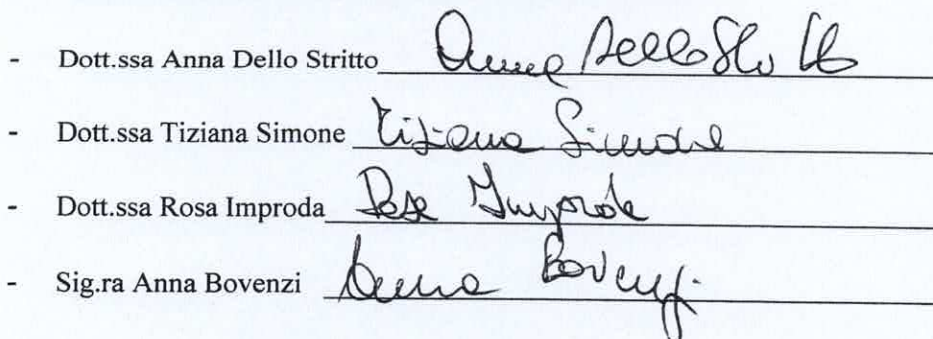 - Dott.ssa Anna Dello Stritto Anna Dello Stritto
- Dott.ssa Tiziana Simone Tiziana Simone
- Dott.ssa Rosa Improda Rosa Improda
- Sig.ra Anna Bovenzi Anna Bovenzi